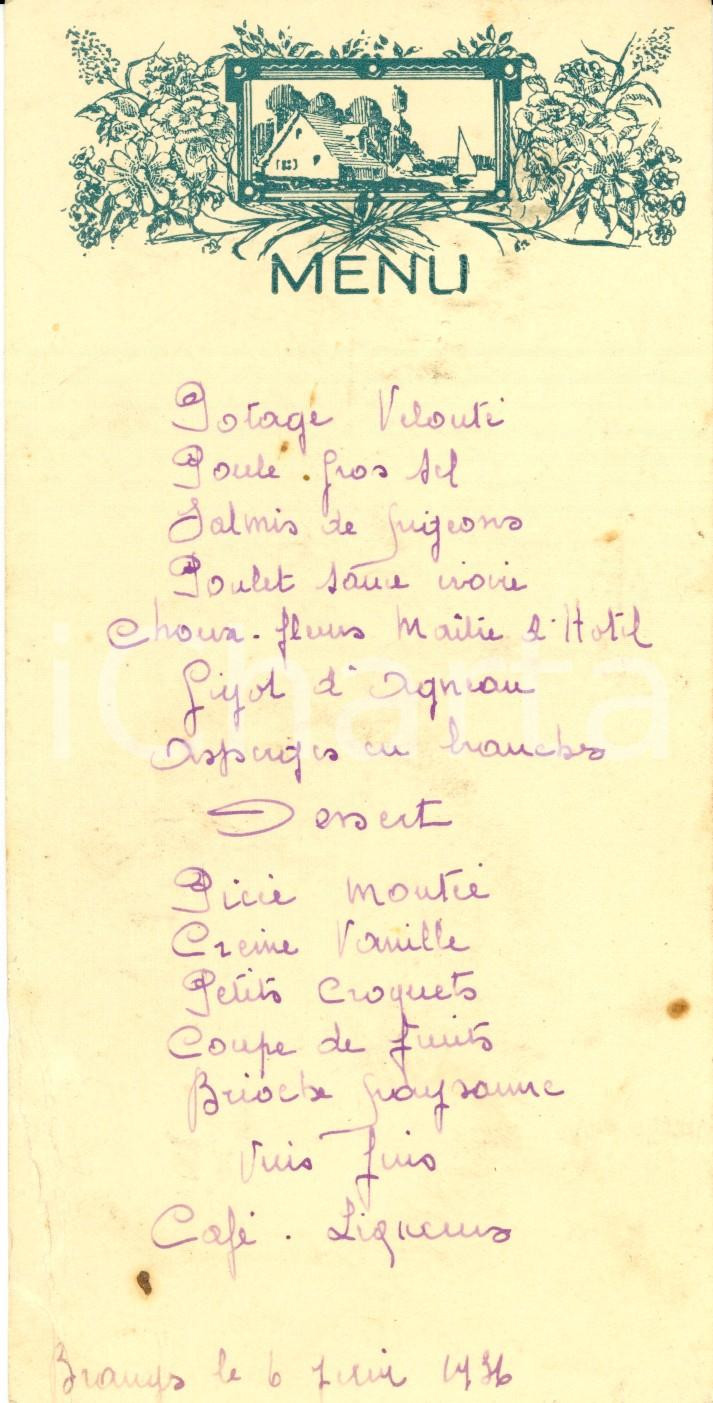 MENU
Potage Velouté
Poule gros sel
Salmis de pigeons
Poulet sauce ivoire
Choux-fleurs Maître d'Hotel
Gigot d'Agneau
Asperges en branches
Dessert
Pièce montée
Creme Vanille
Petits Croquets
Coupe de fruits
Brioche paysanne
Vins fins
Café. Liqueurs
le 6 Juin 1936
iCharta